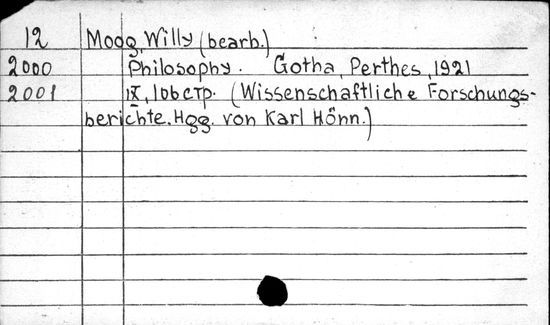 12 Moog, Willy (bearb.)
2000 Philosophy. Gotha, Perthes, 1921
2001 IX, 106 стр. (Wissenschaftliche Forschungs-
berichte. Hgg. von Karl Hönn.)